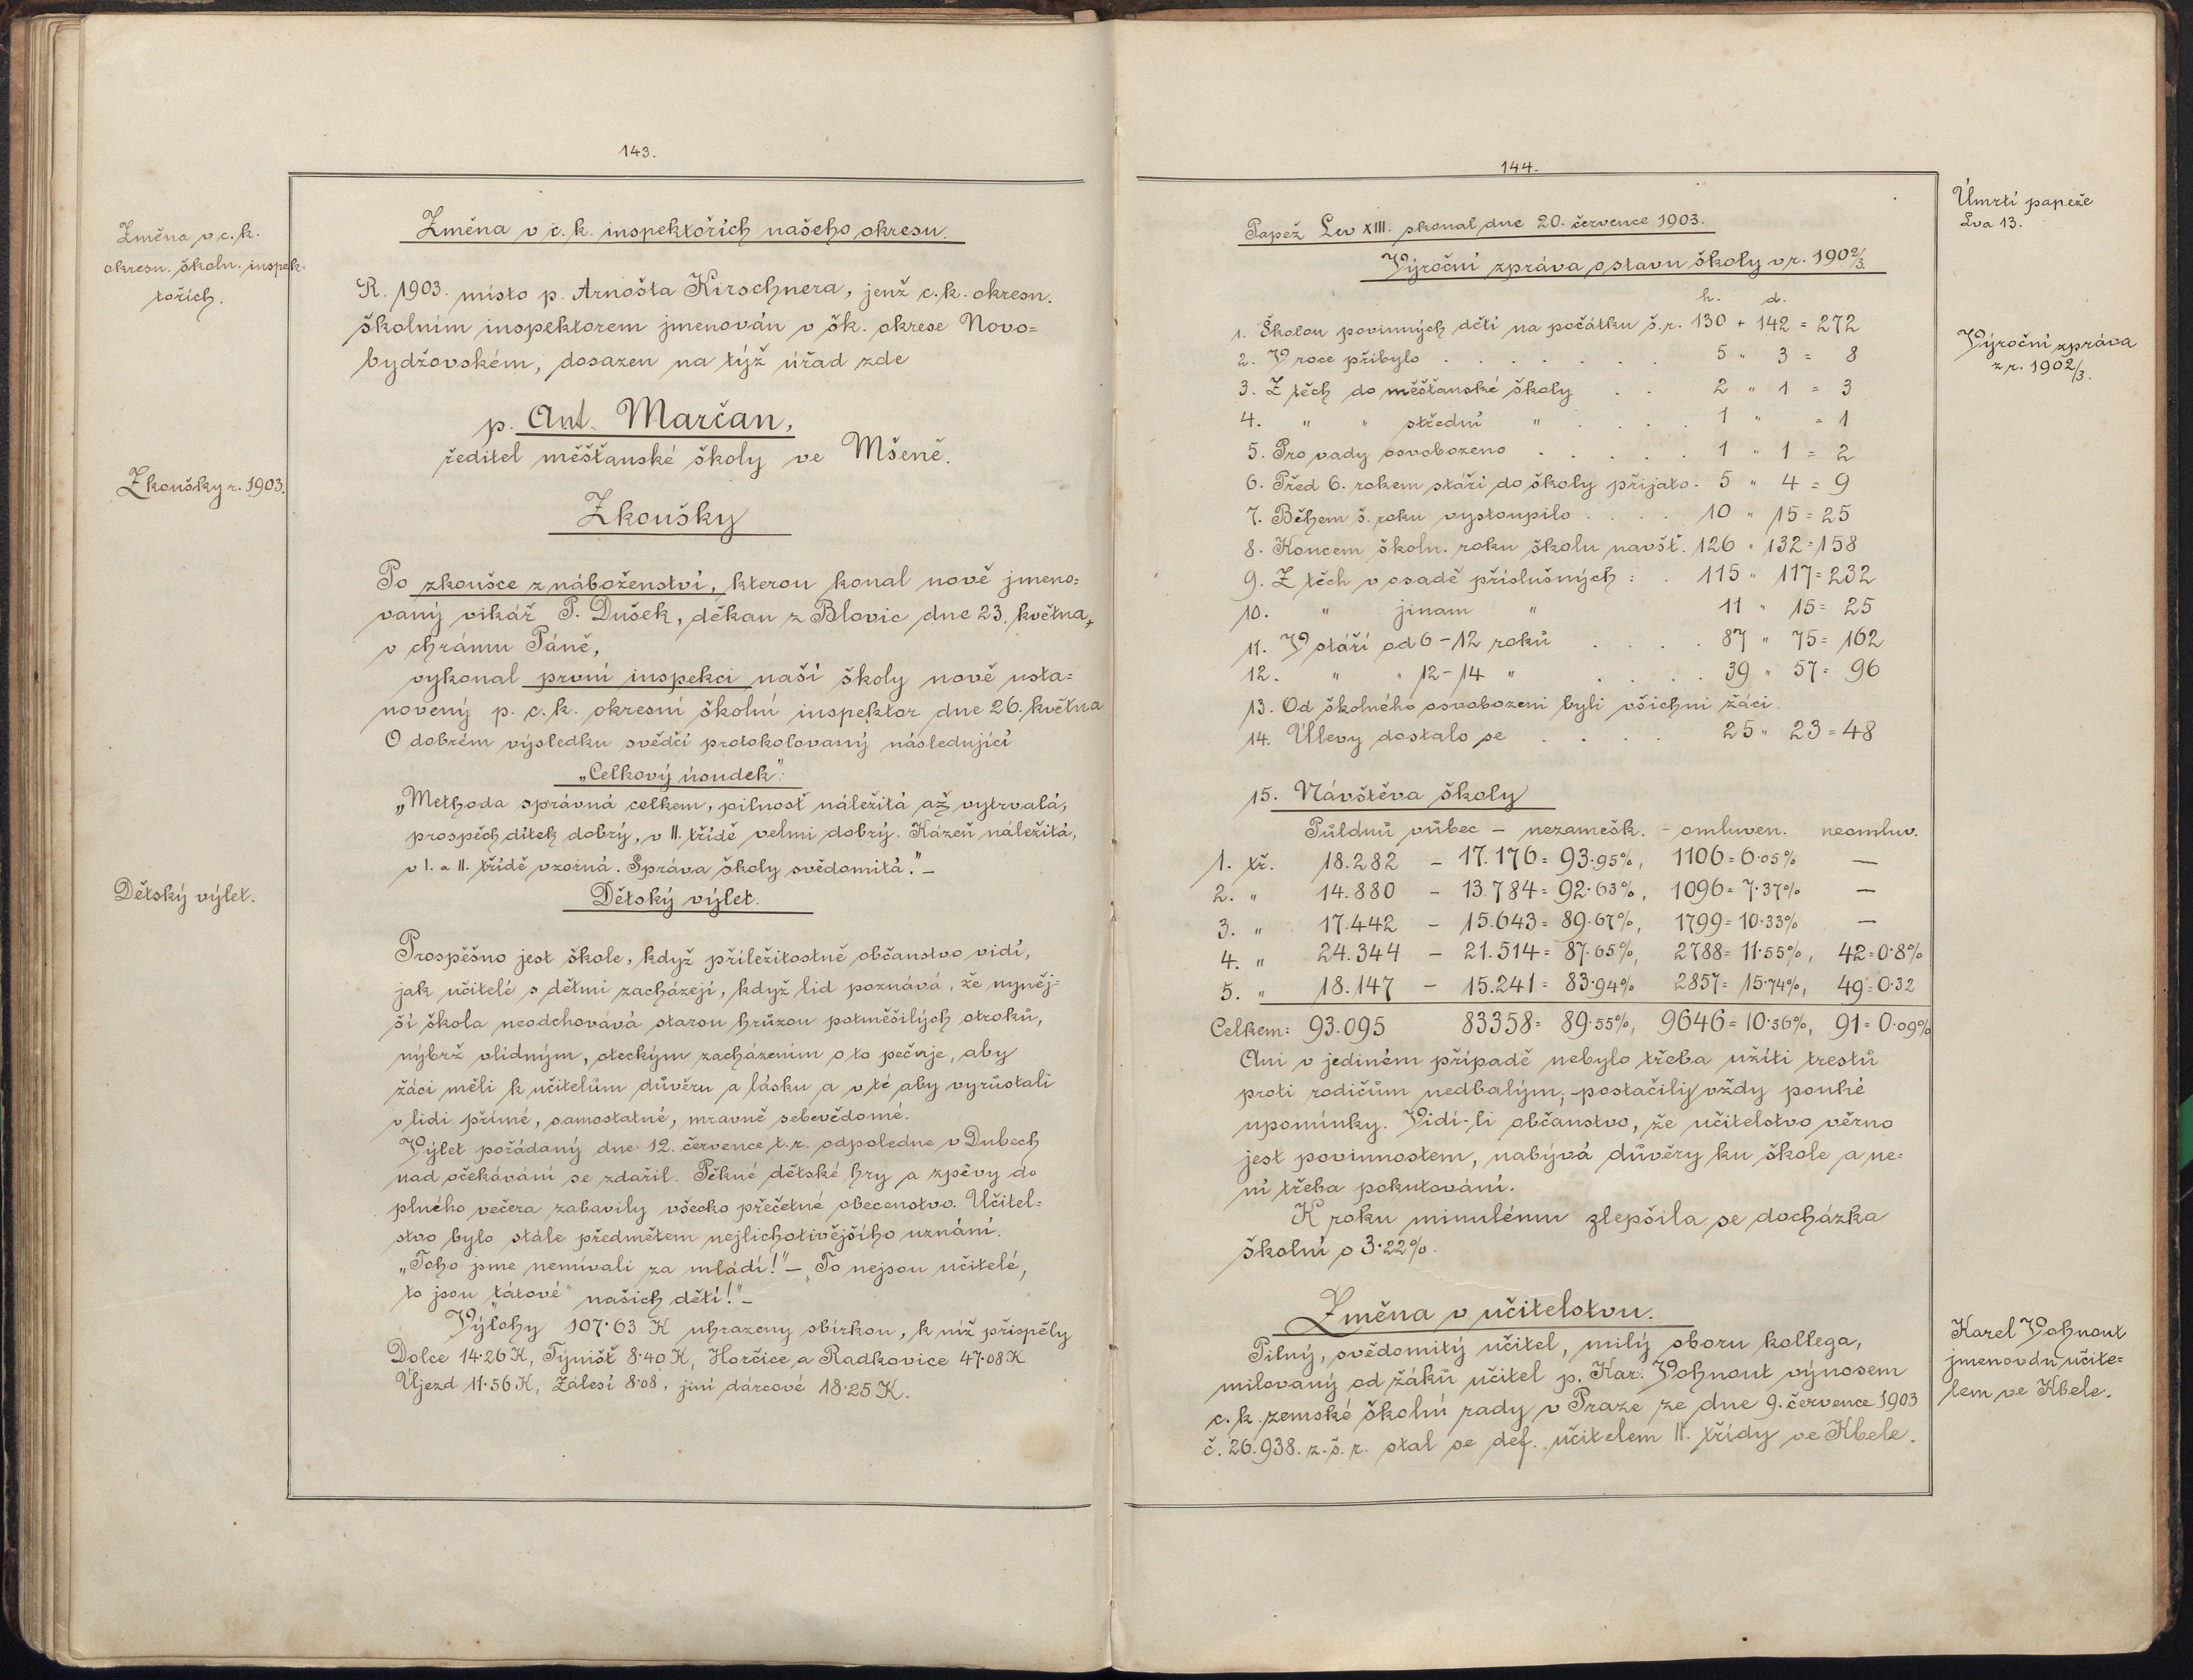 143.
Změna v c. k.
okresn. školn. inspek-
tořích.
Změna v c. k. inspektořích našeho okresu.
R. 1903. místo p. Arnošta Kirschnera, jenž c. k. okresn.
školním inspektorem jmenován v šk. okrese Novo=
bydžovském, dosazen na týž úřad zde
p. Ant. Marčan,
ředitel měšťanské školy ve Mšeně.
Zkoušky r. 1903.
Zkoušky
Po zkoušce z náboženství, kterou konal nově jmeno=
vaný vikář P. Dušek, děkan z Blovic dne 23. května,
v chrámu Páně,
vykonal první inspekci naší školy nově usta=
novený p. c. k. okresní školní inspektor dne 26. května
O dobrém výsledku svědčí protokolovaný následující
„Celkový úsudek“:
„Methoda správná celkem, pilnosť náležitá až vytrvalá,
prospěch dítek dobrý, v II. třídě velmi dobrý. Kázeň náležitá,
v I. a II. třídě vzorná. Správa školy svědomitá.“ –
Dětský výlet.
Dětský výlet.
Prospěšno jest škole, když příležitostně občanstvo vidí,
jak učitelé s dětmi zacházejí, když lid poznává, že nyněj-
ší škola neodchovává starou hrůzou potměšilých otroků,
nýbrž vlídným, oteckým zacházením o to pečuje, aby
žáci měli k učitelům důvěru a lásku a v té aby vyrůstali
v lidi přímé, samostatné, mravně sebevědomé.
Výlet pořádaný dne 12. července t. r. odpoledne v Dubech
nad očekávání se zdařil. Pěkné dětské hry a zpěvy do
plného večera zabavily všecko přečetné obecenstvo. Učitel=
stvo bylo stále předmětem nejlichotivějšího uznání.
„Toho jsme nemívali za mládí!“ – „To nejsou učitelé,
to jsou „tátové“ našich dětí!“ –
Výlohy 107·63 K uhrazeny sbírkou, k níž přispěly
Dolce 14·26 K, Týnišť 8·40 K, Horčice a Radkovice 47·08 K
Újezd 11·56 K, Zálesí 8·08, jiní dárcové 18·25 K.
144.
Úmrtí papeže
Lva 13.
Papež Lev XIII. skonal dne 20. července 1903.
Výroční zpráva o stavu školy v r. 1902/3.
Výroční zpráva
z r. 1902/3.
h. d.
1. Školou povinných dětí na počátku š. r. 130 + 142 = 272
2. V roce přibylo . . . . . . . 5 „ 3 = 8
3. Z těch do měšťanské školy . . 2 „ 1 = 3
4. „ „ střední „ . . . . 1 „ = 1
5. Pro vady osvobozeno . . . . . 1 „ 1 = 2
6. Před 6. rokem stáří do školy přijato . 5 „ 4 = 9
7. Během š. roku vystoupilo . . . . 10 „ 15 = 25
8. Koncem školn. roku školu navšť. 126 „ 132 = 158
9. Z těch v osadě příslušných : . 115 „ 117 = 232
10. „ jinam „ 11 „ 15 = 25
11. V stáří od 6 – 12 roků . . . . 87 „ 75 = 162
12. „ „ 12 – 14 „ . . . . 39 „ 57 = 96
13. Od školného osvobozeni byli všichni žáci.
14. Úlevy dostalo se . . . . 25 „ 23 = 48
15. Návštěva školy
Půldnů vůbec – nezamešk. – omluven. neomluv.
1. tř. 18.282 – 17.176 = 93·95%, 1106 = 6·05% —
2. „ 14.880 – 13.784 = 92·63%, 1096 = 7·37% —
3. „ 17.442 – 15.643 = 89·67%, 1799 = 10·33% —
4. „ 24.344 – 21.514 = 87·65%, 2788 = 11·55%, 42 = 0·8%
5. „ 18.147 – 15.241 = 83·94% 2857 = 15·74%, 49 = 0·32
Celkem: 93.095 83358 = 89·55%, 9646 = 10·36%, 91 = 0·09%
Ani v jediném případě nebylo třeba užíti trestů
proti rodičům nedbalým; – postačily vždy pouhé
upomínky. Vidí-li občanstvo, že učitelstvo věrno
jest povinnostem, nabývá důvěry ku škole a ne=
ní třeba pokutování.
K roku minulému zlepšila se docházka
školní o 3·22%.
Změna v učitelstvu.
Karel Vohnout
jmenován učite=
lem ve Kbele.
Pilný, svědomitý učitel, milý sboru kollega,
milovaný od žáků učitel p. Kar. Vohnout výnosem
c. k. zemské školní rady v Praze ze dne 9. července 1903
č. 26.938. z. š. r. stal se def. učitelem II. třídy ve Kbele.